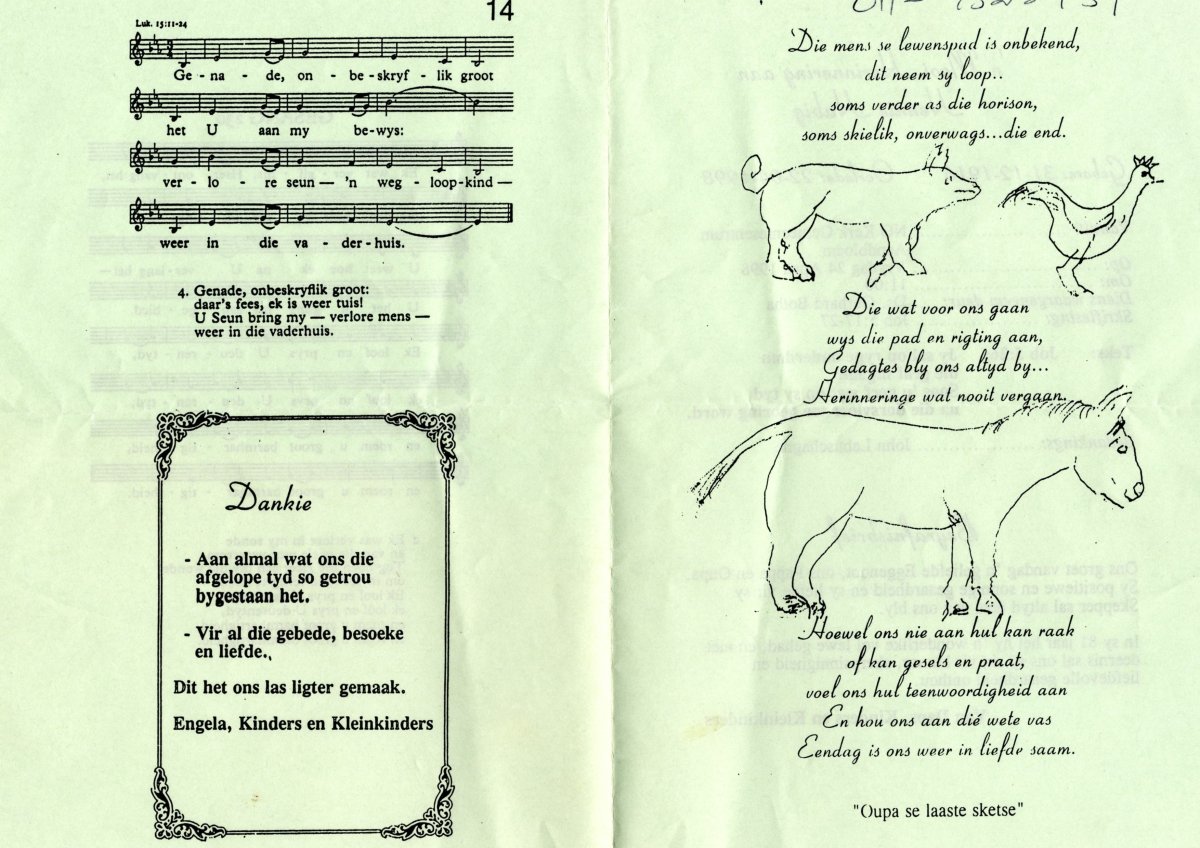 14
Luk. 15:11-24
Ge - na - de, on - be - skryf - lik groot
het U aan my be - wys:
ver - lo - re seun — 'n weg - loop - kind —
weer in die va - der - huis.
4. Genade, onbeskryflik groot:
daar's fees, ek is weer tuis!
U Seun bring my — verlore mens —
weer in die vaderhuis.
Dankie
- Aan almal wat ons die
afgelope tyd so getrou
bygestaan het.
- Vir al die gebede, besoeke
en liefde.
Dit het ons las ligter gemaak.
Engela, Kinders en Kleinkinders
Die mens se lewenspad is onbekend,
dit neem sy loop..
soms verder as die horison,
soms skielik, onverwags...die end.
Die wat voor ons gaan
wys die pad en rigting aan,
Gedagtes bly ons altyd by...
Herinneringe wat nooit vergaan.
Hoewel ons nie aan hul kan raak
of kan gesels en praat,
voel ons hul teenwoordigheid aan
En hou ons aan dié wete vas
Eendag is ons weer in liefde saam.
"Oupa se laaste sketse"